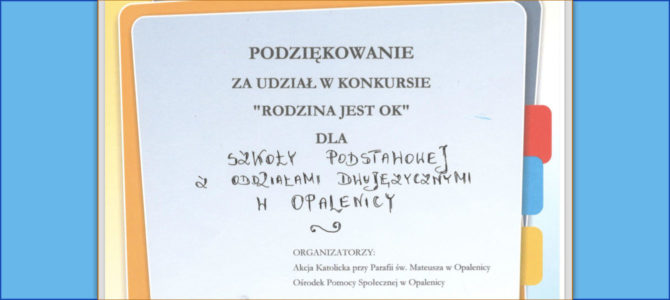 PODZIĘKOWANIE
ZA UDZIAŁ W KONKURSIE
"RODZINA JEST OK"
DLA
SZKOŁY PODSTAWOWEJ
Z ODDZIAŁAMI DWUJĘZYCZNYMI
W OPALENICY
ORGANIZATORZY:
Akcja Katolicka przy Parafii św. Mateusza w Opalenicy
Ośrodek Pomocy Społecznej w Opalenicy